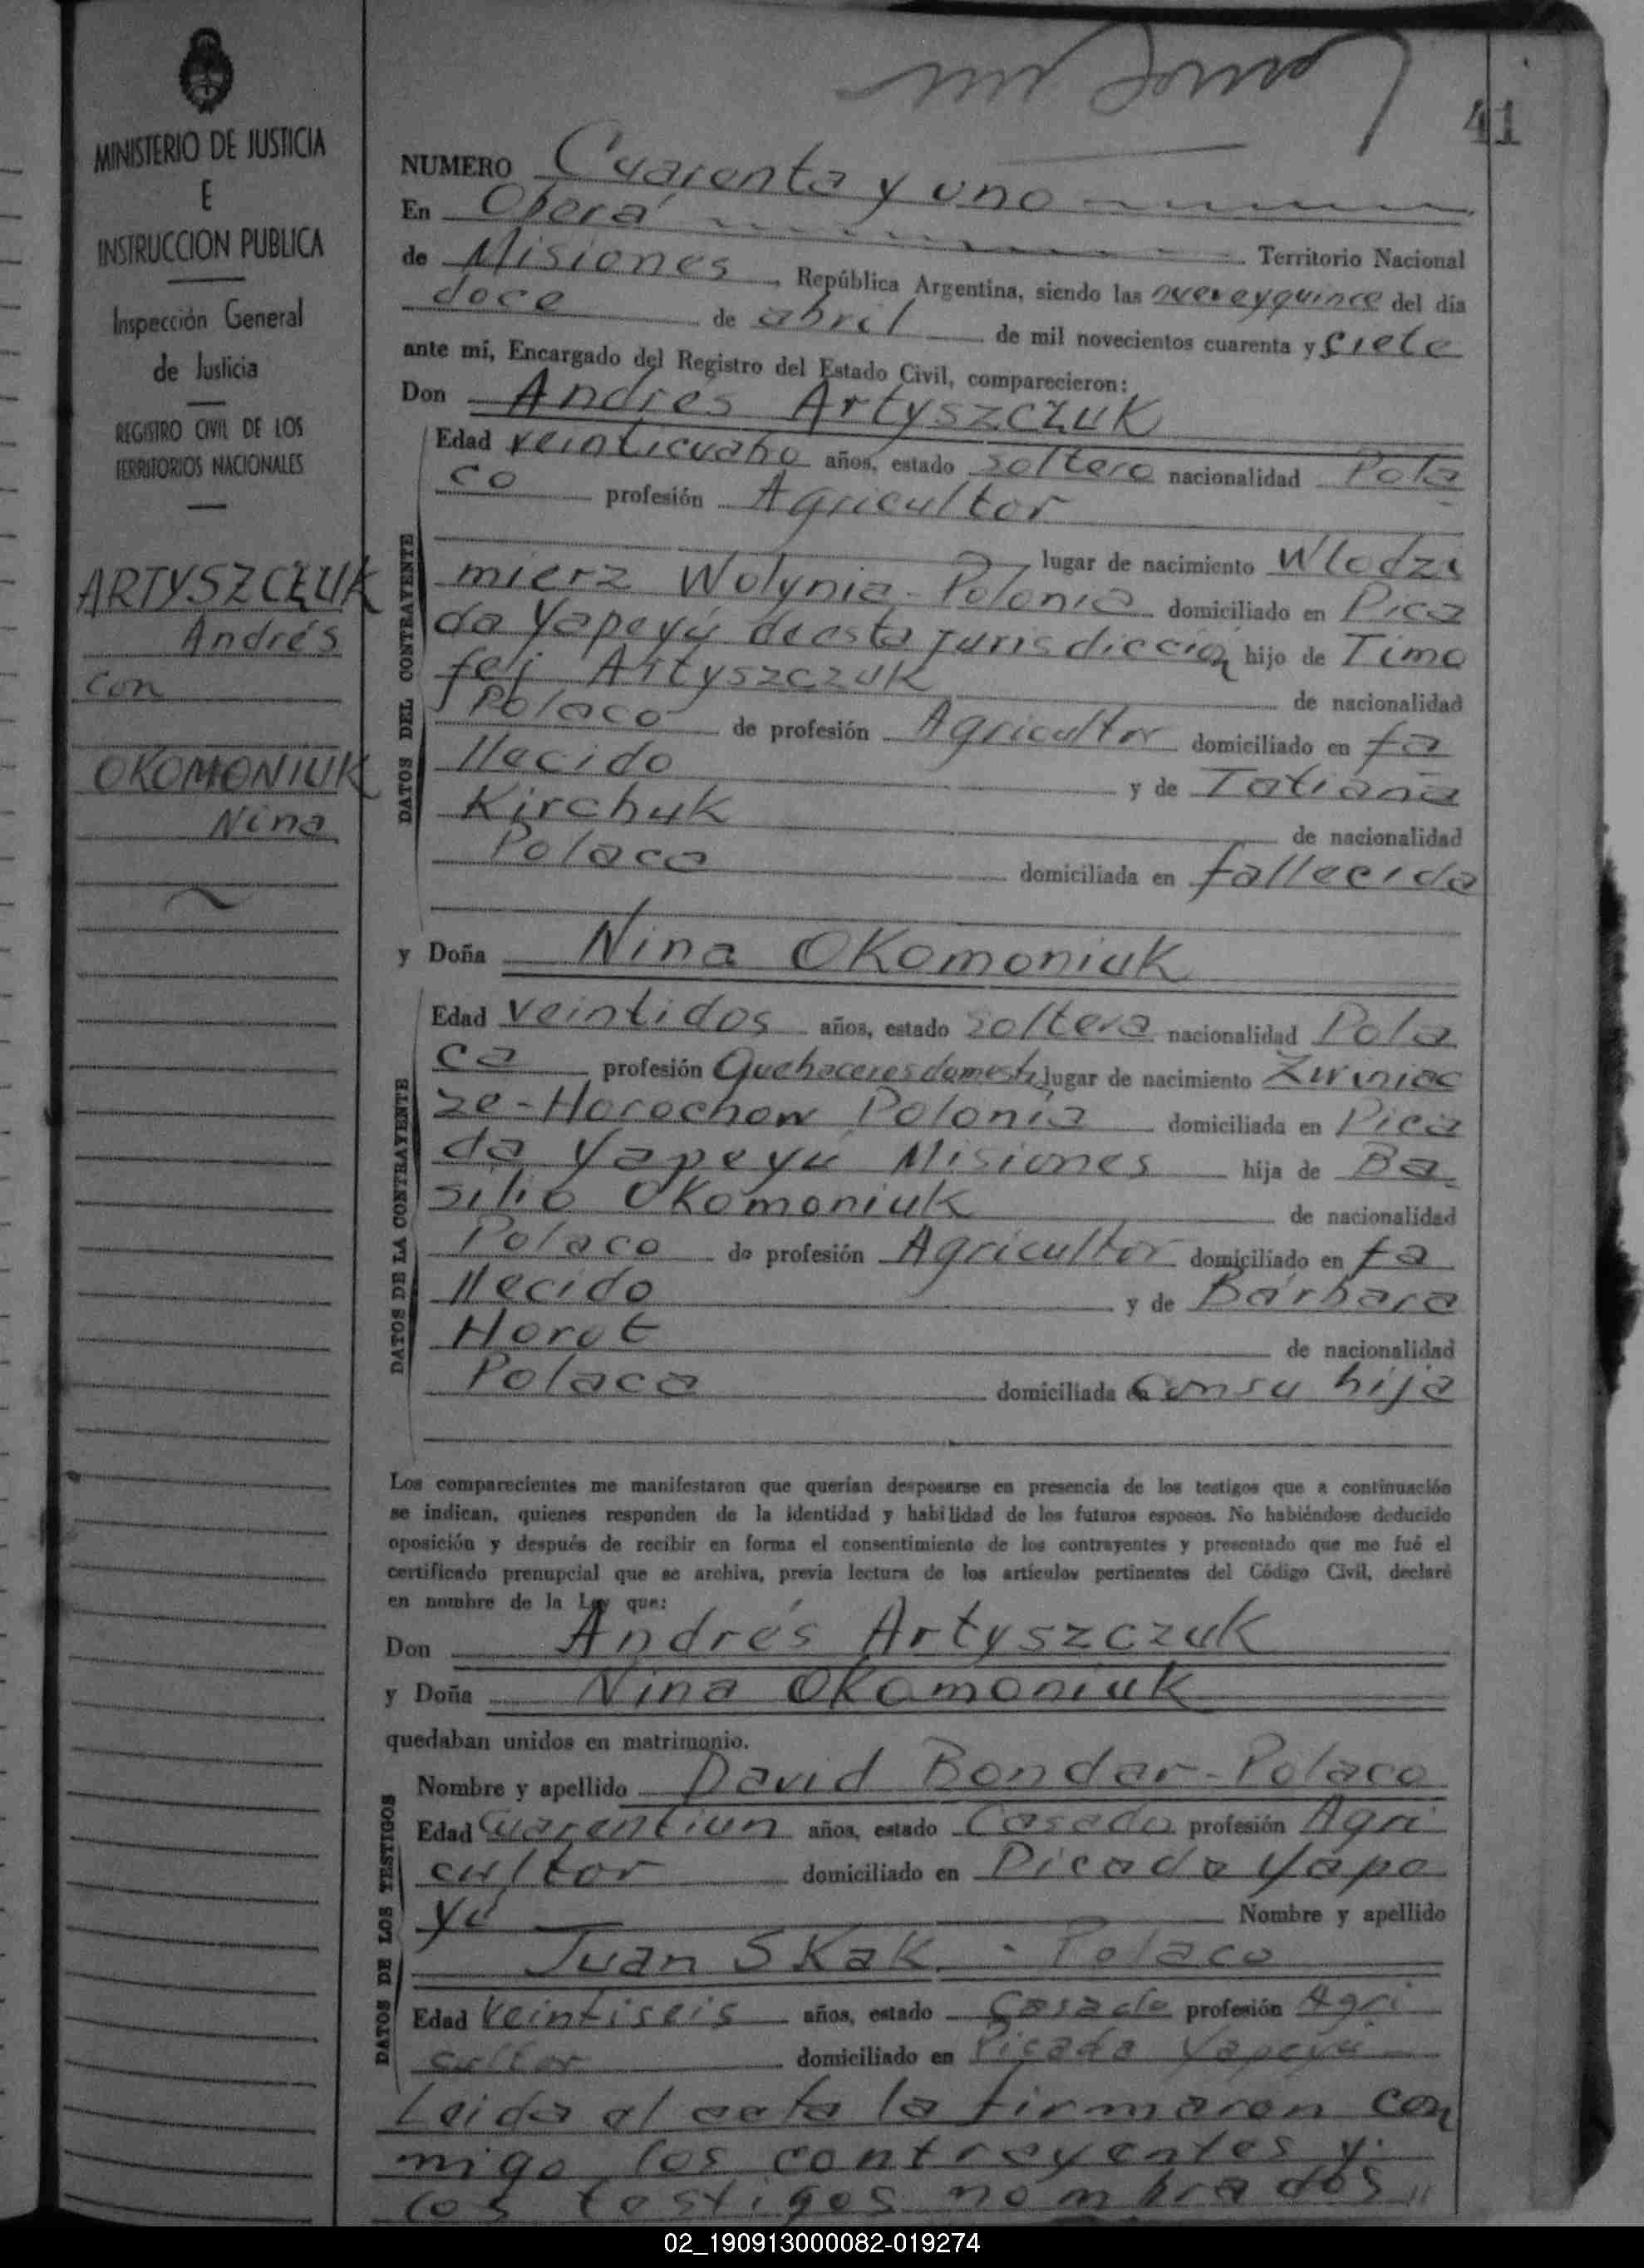 41
MINISTERIO DE JUSTICIA
E
INSTRUCCION PUBLICA
Inspección General
de Justicia
REGISTRO CIVIL DE LOS
TERRITORIOS NACIONALES
ARTYSZCZUK
Andrés
con
OKOMONIUK
Nina
NUMERO Cuarenta y uno
En Oberá
Territorio Nacional
de Misiones, República Argentina, siendo las nueve y quince del día
doce de abril de mil novecientos cuarenta y siete
ante mí, Encargado del Registro del Estado Civil, comparecieron:
Don Andrés Artyszczuk
DATOS DEL CONTRAYENTE
Edad veinticuatro años, estado soltero nacionalidad Pola
co profesión Agricultor
lugar de nacimiento Wlodzi
mierz Wolynia-Polonia domiciliado en Pica
da Yapeyú de esta jurisdicción hijo de Timo
fej Artyszczuk de nacionalidad
Polaco de profesión Agricultor domiciliado en fa
llecido y de Tatiana
Kirchuk de nacionalidad
Polaca domiciliada en fallecida
y Doña Nina Okomoniuk
DATOS DE LA CONTRAYENTE
Edad veintidos años, estado soltera nacionalidad Pola
ca profesión Quehaceres domesti lugar de nacimiento Zwiniac
ze-Horochow Polonia domiciliada en Pica
da Yapeyú Misiones hija de Ba
silio Okomoniuk de nacionalidad
Polaco de profesión Agricultor domiciliado en fa
llecido y de Bárbara
Horot de nacionalidad
Polaca domiciliada en con su hija
Los comparecientes me manifestaron que querían desposarse en presencia de los testigos que a continuación
se indican, quienes responden de la identidad y habilidad de los futuros esposos. No habiéndose deducido
oposición y después de recibir en forma el consentimiento de los contrayentes y presentado que me fué el
certificado prenupcial que se archiva, previa lectura de los artículos pertinentes del Código Civil, declaré
en nombre de la Ley que:
Don Andrés Artyszczuk
y Doña Nina Okomoniuk
quedaban unidos en matrimonio.
DATOS DE LOS TESTIGOS
Nombre y apellido David Bondar-Polaco
Edad Cuarentiun años, estado Casado profesión Agri
cultor domiciliado en Picada Yape
yú Nombre y apellido
Juan Skak - Polaco
Edad Veintiseis años, estado Casado profesión Agri
cultor domiciliado en Picada Yapeyú
Leida el acta la firmaron con
migo los contrayentes y
los testigos nombrados
02_190913000082-019274